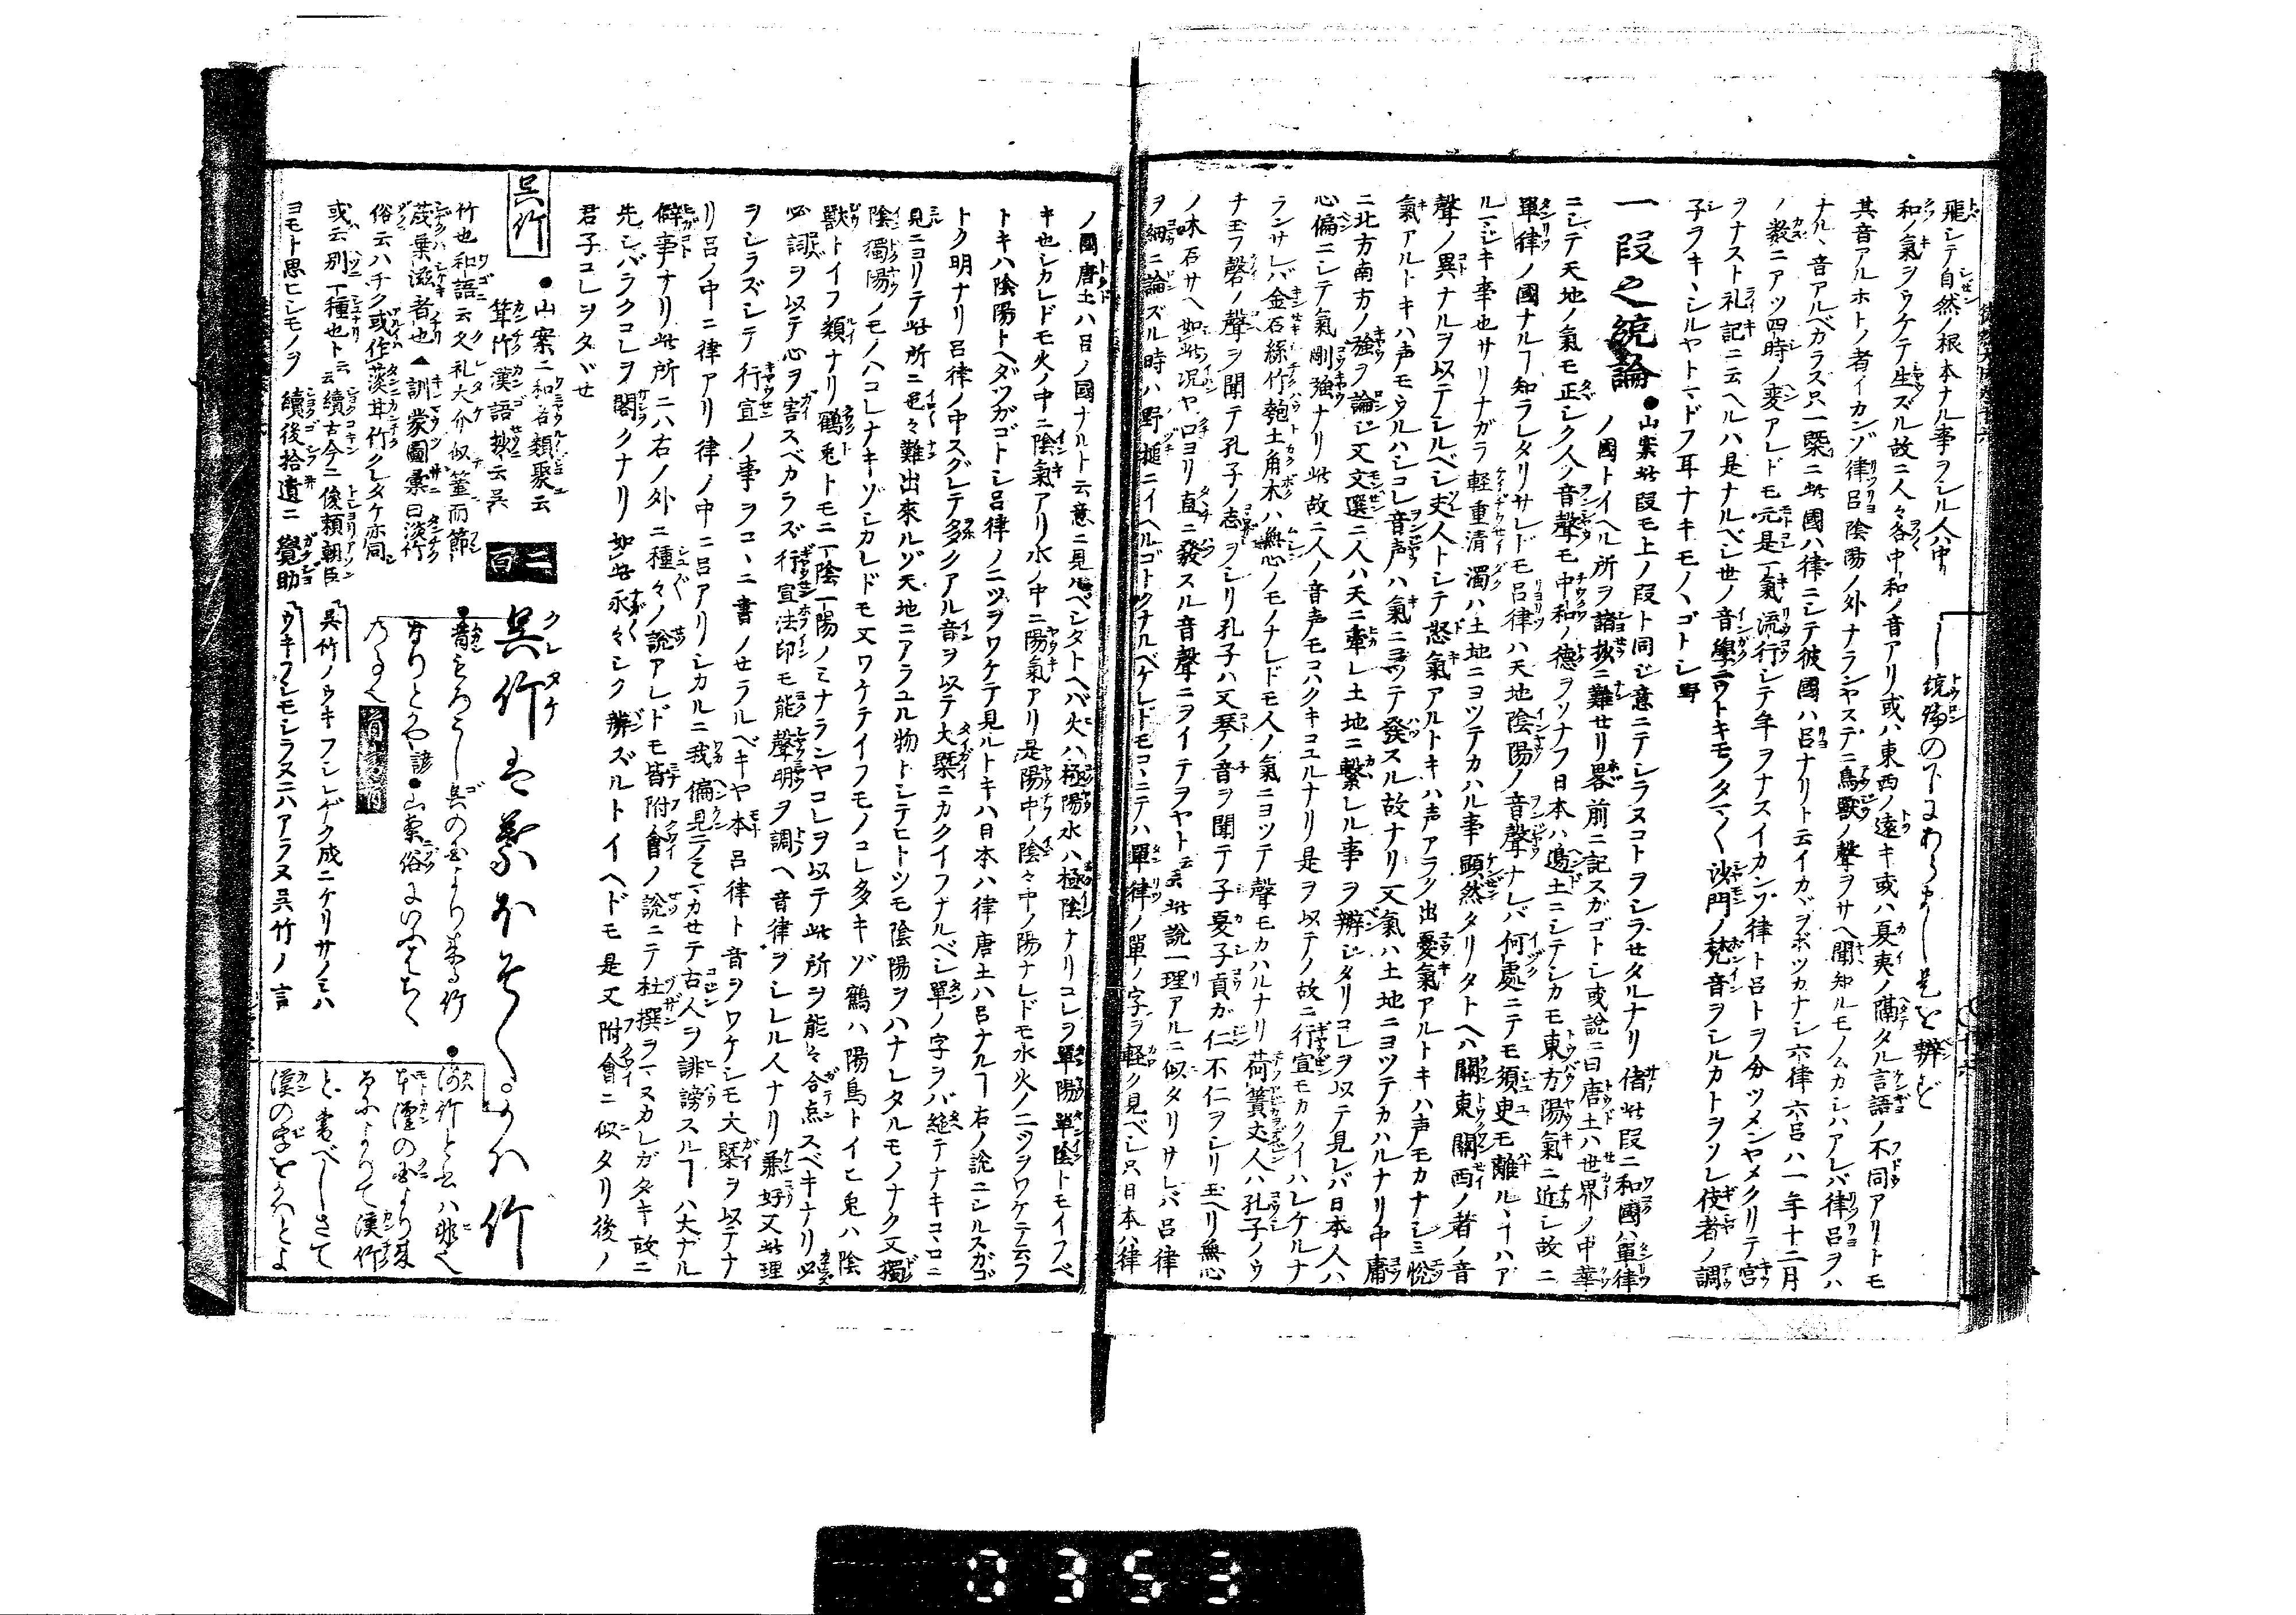 飛シテ自然ノ根本ナル事ヲシル人ハ中
和ノ氣ヲウケテ生ズル故ニ人々各中和ノ音アリ或ハ東西ノ遠キ或ハ夏夷ノ隔タル言語ノ不同アリトモ
其音アルホトノ者イカンゾ律呂陰陽ノ外ナランヤステニ鳥獣ノ聲ヲサヘ聞知ルモノムカシハアレバ律呂ヲハ
ナルヽ音アルベカラス只一槩ニ此國ハ律ニシテ彼國ハ呂ナリト云イカヾヲボツカナシ六律六呂ハ一年十二月
ノ数ニアツ四時ノ変アレドモ元是一氣流行シテ年ヲナスイカンゾ律ト呂トヲ分ツメンヤメクリテ宮
ヲナスト礼記ニ云ヘルハ是ナルベシ世ノ音學ニウトキモノタマ〱沙門ノ梵音ヲシルカトヲソレ伎者ノ調
子ヲキヽシルヤトマドフ耳ナキモノヽゴトシ野
一段之統論 ●山案此段モ上ノ段ト同ジ意ニテシラヌコトヲシラセタルナリ偖此段ニ和國ハ單律
ノ國トイヘル所ヲ諸抄ニ難セリ畧前ニ記スガゴトシ或説ニ曰唐土ハ世界ノ中華
ニシテ天地ノ氣モ正シク人ノ音聲モ中和ノ德ヲソナフ日本ハ邊土ニシテシカモ東方陽氣ニ近シ故ニ
單律ノ國ナルヿ知ラレタリサレドモ呂律ハ天地陰陽ノ音聲ナレバ何處ニテモ須臾モ離ルヽヿハア
ルマジキ事也サリナガラ軽重清濁ハ土地ニヨツテカハル事顕然タリタトヘハ關東關西ノ者ノ音
聲ノ異ナルヲ以テシルベシ夫人トシテ怒氣アルトキハ声アラク出憂氣アルトキハ声モカナシミ悦
氣アルトキハ声モウルハシコレ音声ハ氣ニヨツテ發スル故ナリ又氣ハ土地ニヨツテカハルナリ中庸
ニ北方南方ノ強ヲ論ジ又文選ニ人ハ天ニ牽レ土地ニ繋レル事ヲ辨ジタリコレヲ以テ見レバ日本人ハ
心偏ニシテ氣剛強ナリ此故ニ人ノ音声モコハクキコユルナリ是ヲ以テノ故ニ行宣モカクイハレケルナ
ランサレバ金石絲竹匏土角木ハ無心ノモノナレドモ人ノ氣ニヨツテ聲モカハルナリ荷簣丈人ハ孔子ノウ
チ玉フ磬ノ聲ヲ聞テ孔子ノ志ヲシリ孔子ハ又琴ノ音ヲ聞テ子憂子貢ガ仁不仁ヲシリ玉ヘリ無心
ノ木石サヘ如此況ヤ口ヨリ直ニ發スル音聲ニヲイテヲヤト云云此說一理アルニ似タリサレバ呂律
ヲ細ニ論ズル時ハ野槌ニイヘルゴトクナルベケレドモコヽニテハ單律ノ單ノ字ヲ軽ク見ベシ只日本ハ律
ノ國唐土ハ呂ノ國ナルト云意ニ見ルベシタトヘバ火ハ極陽水ハ極陰ナリコレヲ單陽單陰トモイフベ
キ也シカレドモ火ノ中ニ陰氣アリ水ノ中ニ陽氣アリ是陽中ノ陰々中ノ陽ナレドモ水火ノ二ツヲワケテ云フ
トキハ陰陽トヘダツガゴトシ呂律ノニツヲワケテ見ルトキハ日本ハ律唐土ハ呂ナルヿ右ノ説ニシルスガゴ
トク明ナリ呂律ノ中スグレテ多クアル音ヲ以テ大槩ニカクイフナルベシ單ノ字ヲバ縦テナキコヽロニ
見ニヨリテ此所ニ色々難出來ルゾ天地ニアラユル物トシテヒトツモ陰陽ヲハナレタルモノナク又獨
陰獨陽ノモノハコレナキゾシカレドモ又ワケテイフモノコレ多キゾ鶴ハ陽鳥トイヒ兎ハ陰
獸トイフ類ナリ鶴兎トモニ一陰一陽ノミナランヤコレヲ以テ此所ヲ能々合点スベキナリ必
必詞ヲ以テ心ヲ害スベカラズ行宣法印モ能聲明ヲ調ヘ音律ヲシレル人ナリ兼好又此理
ヲシラズシテ行宣ノ事ヲコヽニ書ノセラルベキヤ本呂律ト音ヲワケシモ大槩ヲ以テナ
リ呂ノ中ニ律アリ律ノ中ニ呂アリシカルニ我偏見ニマカセテ古人ヲ誹謗スルヿハ大ナル
僻事ナリ此所ニハ右ノ外ニ種々ノ說アレドモ皆附會ノ說ニテ杜撰ヲマヌカレガタキ故ニ
先シバラクコレヲ閣クナリ如此永々シク辨ズルトイヘドモ是又附會ニ似タリ後ノ
君子コレヲタヾセ
呉竹 ●山案ニ和名類聚云
箪竹漢語抄云呉
竹也和語云久礼太介似筀而節
茂葉滋者也▲訓蒙圖彙曰淡竹
俗云ハチク或作淡苷竹クレタケ亦同
或云別一種也ト云云續古今ニ俊頼朝臣
ヨモト思ヒシモノヲ 續後拾遺ニ覺助
二百 呉竹は葉ほそく。かは竹
なりとかや諺●山案俗にいふはちく
呉竹ノウキフシシゲク成ニケリサノミハ
ウキフシモシラスニハアラヌ呉竹ノ言
●河竹と云ハ非也
と書べしさて
漢の字をかはとよ
0353